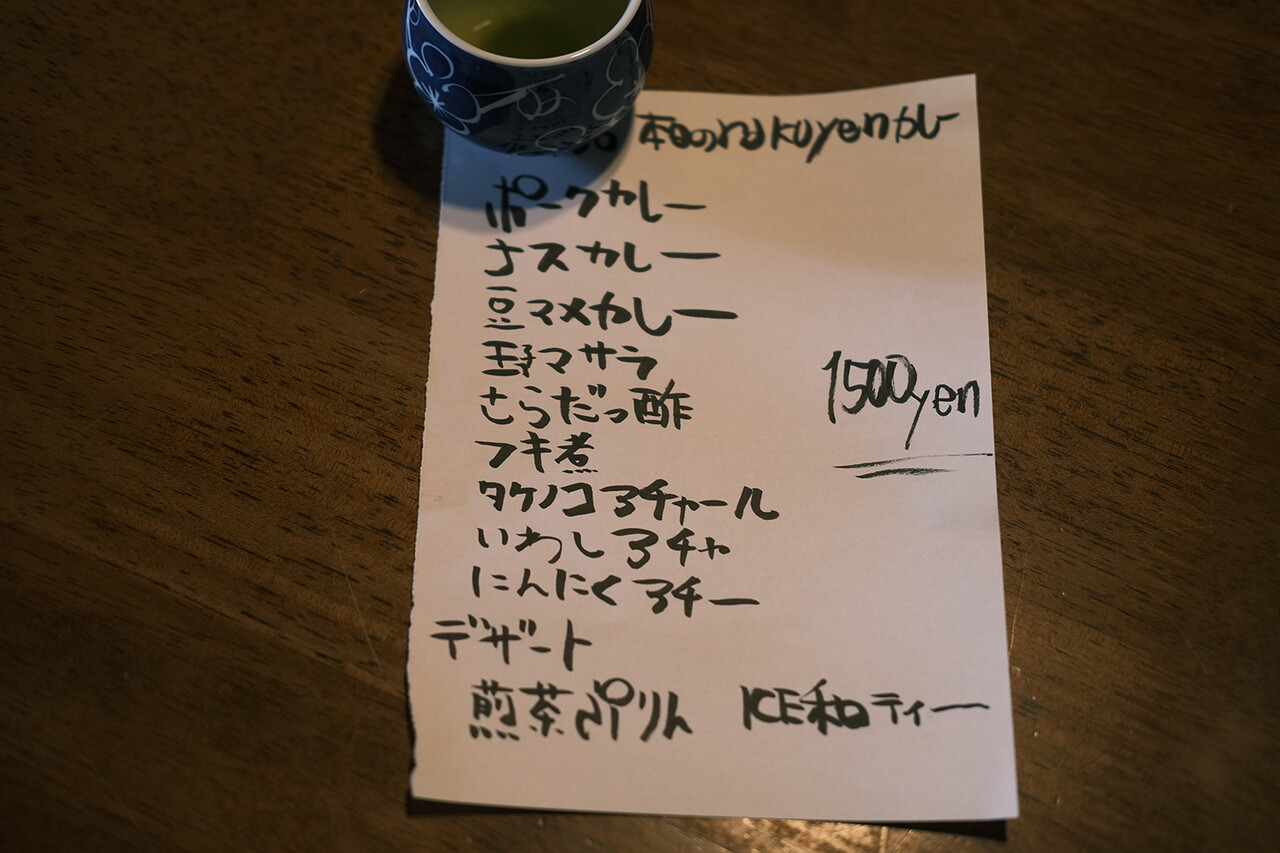 本日のrakuyenカレー
ポークカレー
ナスカレー
豆マメカレー
野マサラ
さらだっ酢
フキ煮
タケノコアチャール
いわしアチャ
にんにくアチー
1500yen
デザート
煎茶ぷりん ICE和ティー